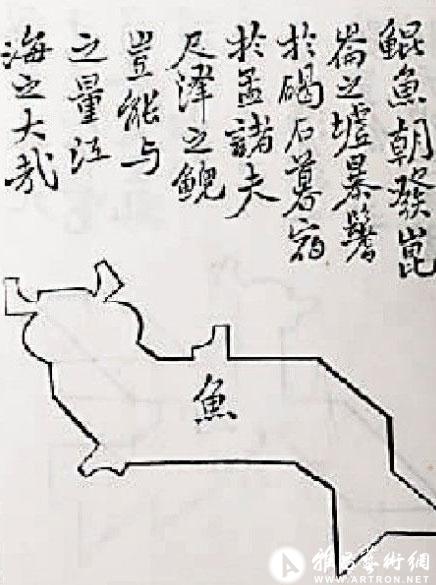 鯤魚朝發崑
崙之墟暴鬐
於碣石暮宿
於孟諸夫
尺澤之鯢
豈能与
之量江
海之大哉
魚
雅昌藝術網
WWW.ARTRON.NET